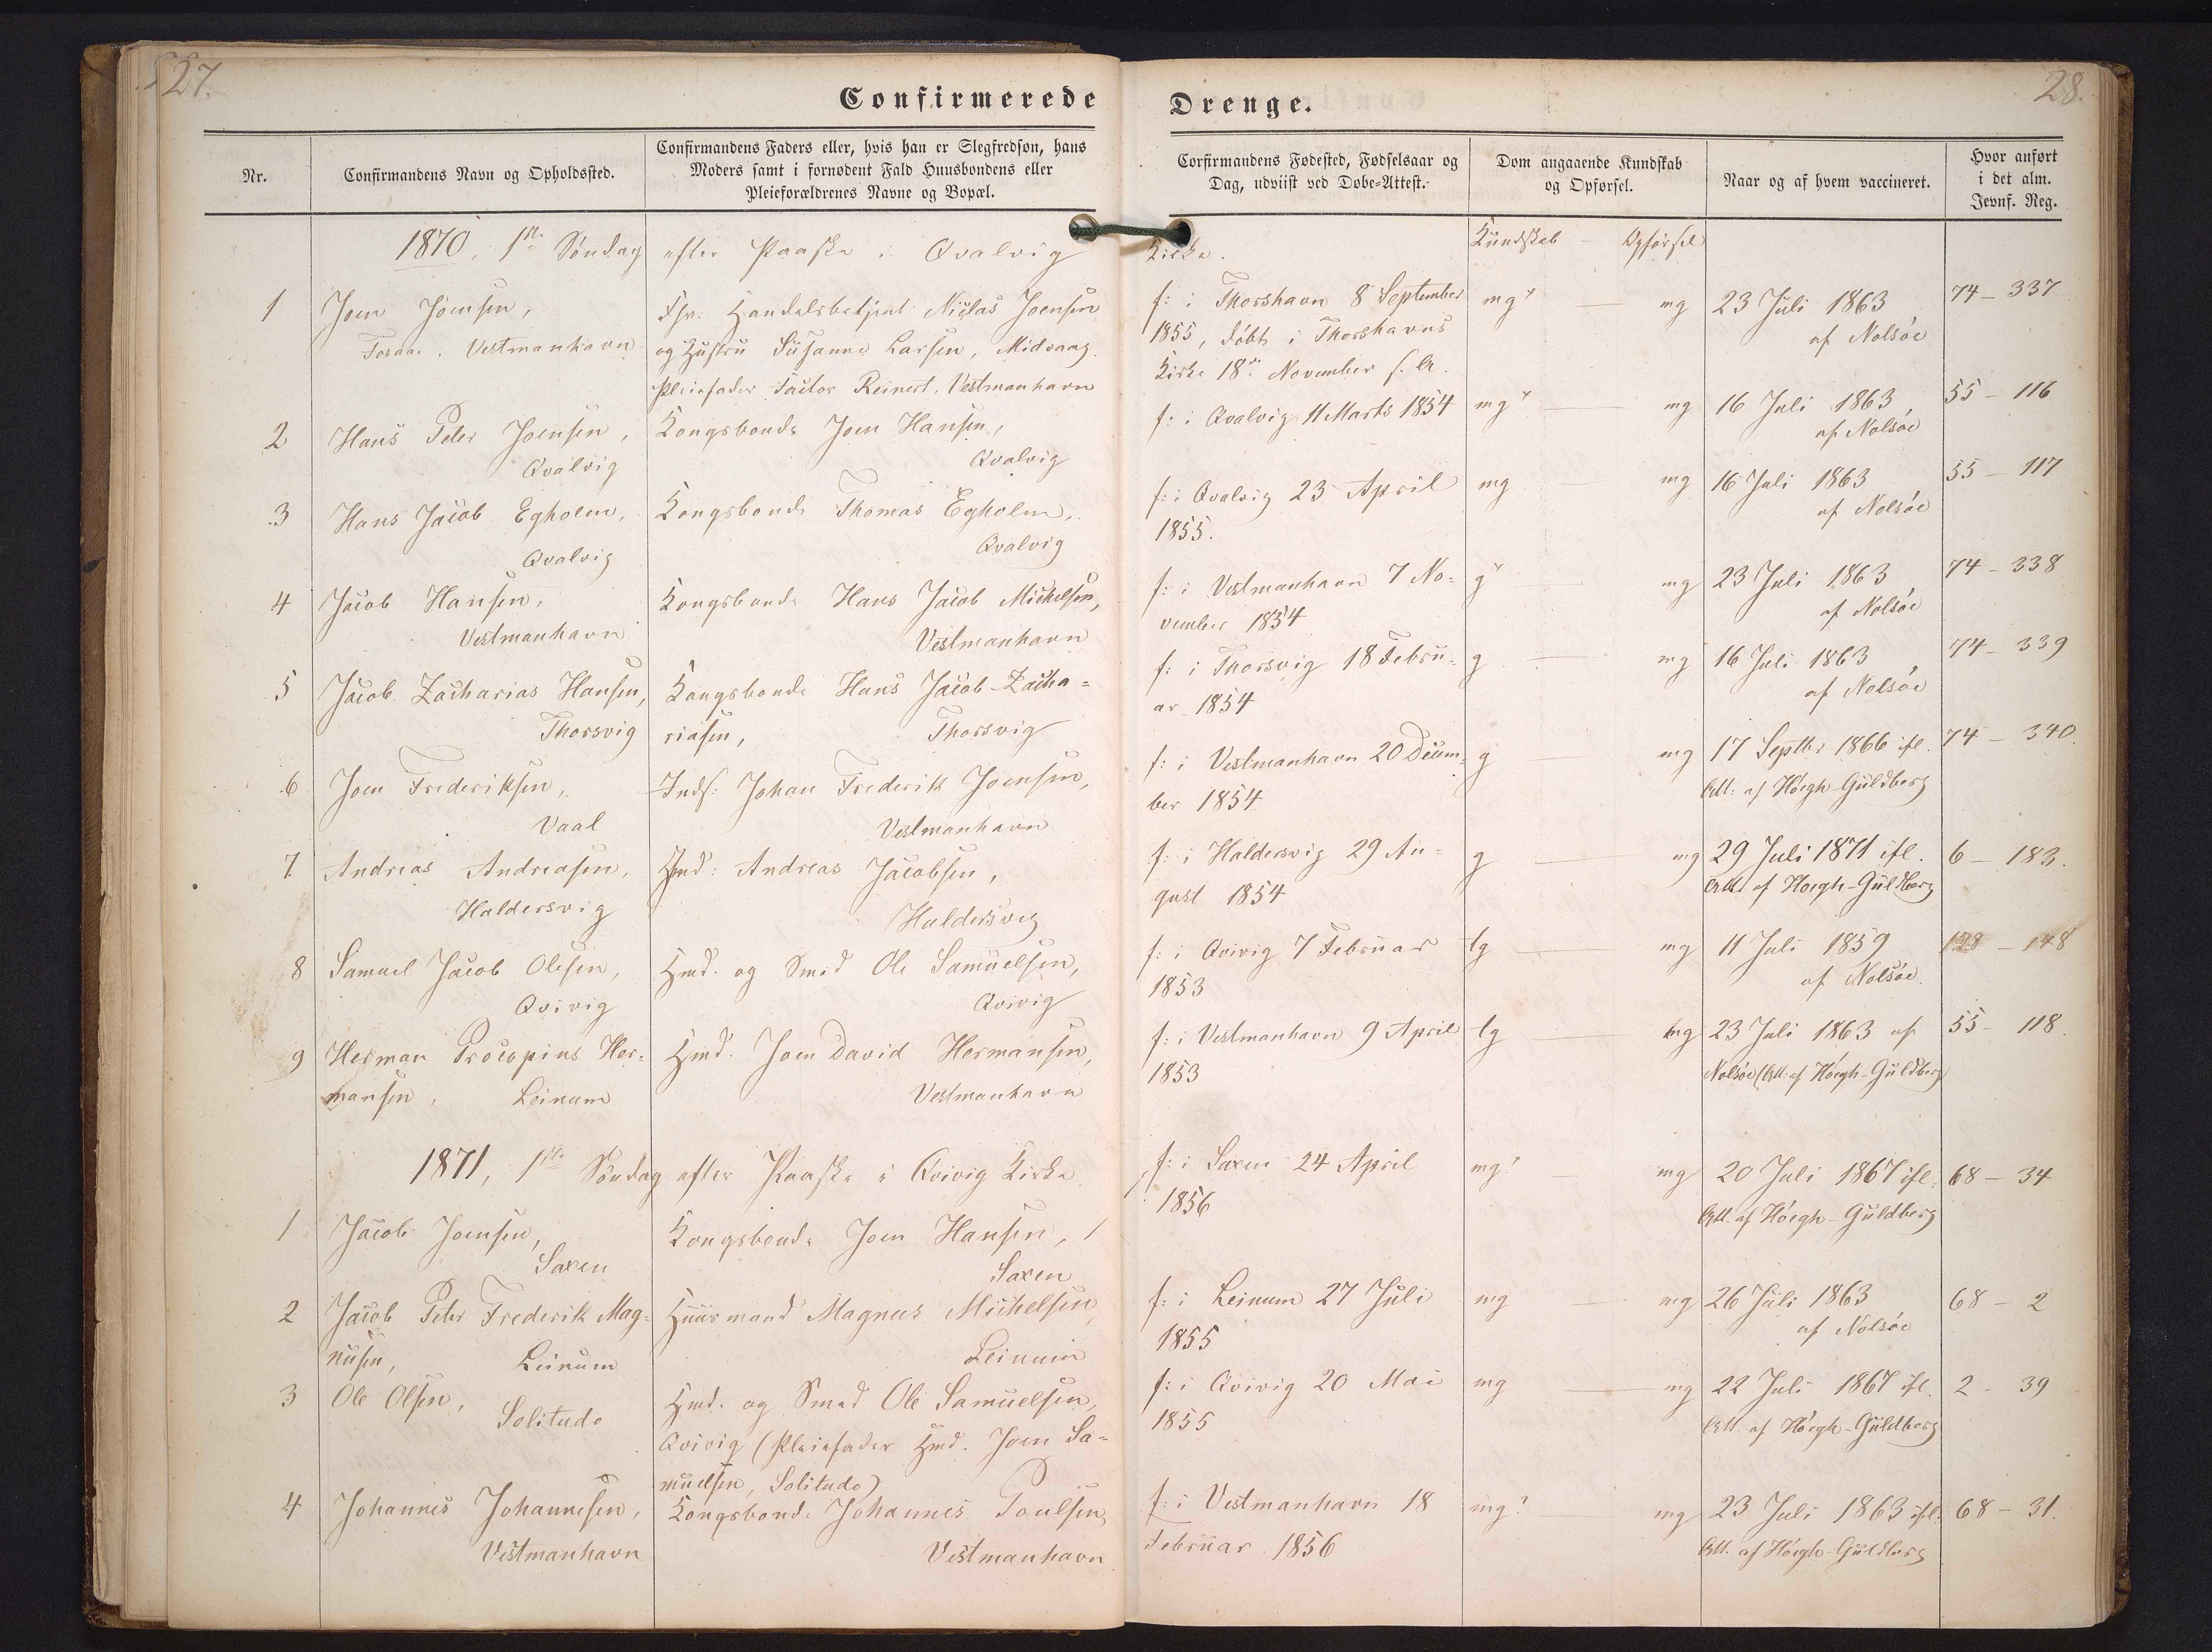 27.
28.
Confirmerede Drenge.
Nr.
Confirmandens Navn og Opholdssted.
Confirmandens Faders eller, hvis han er Slegfredsøn, hans
Moders samt i fornødent Fald Huusbondens eller
Pleieforældrenes Navne og Bopæl.
Corfirmandens Fødested, Fødselsaar og
Dag, udviist ved Døbe-Attest.
Dom angaaende Kundskab
og Opførsel.
Naar og af hvem vaccineret.
Hvor anført
i det alm.
Jevnf. Reg.
1870, 1ste Søndag efter Paaske i Qvalvig Kirke.
Kundskab – Opførsel
1
Joen Joensen,
Vestmanhavn
Handelsbetjent Niclas Joensen
og Hustru Susanne Larsen, Midvaag.
Pleiefader Factor Reinert, Vestmanhavn
f: i Thorshavn 8 September
1855, døbt i Thorshavns
Kirke 18de November s. A.
mg+ — mg
23 Juli 1863
af Nolsøe
74 – 337
2
Hans Peter Joensen,
Qvalvig
Kongsbonde Joen Hansen,
Qvalvig
f: i Qvalvig 11 Marts 1854
mg+ — mg
16 Juli 1863,
af Nolsøe
55 – 116
3
Hans Jacob Egholm,
Qvalvig
Kongsbonde Thomas Egholm,
Qvalvig
f: i Qvalvig 23 April
1855.
mg — mg
16 Juli 1863
af Nolsøe
55 – 117
4
Jacob Hansen,
Vestmanhavn
Kongsbonde Hans Jacob Michelsen,
Vestmanhavn
f: i Vestmanhavn 7 No-
vember 1854
g+ — mg
23 Juli 1863
af Nolsøe
74 – 338
5
Jacob Zacharias Hansen,
Thorsvig
Kongsbonde Hans Jacob Zacha-
riasen, Thorsvig
f: i Thorsvig 18 Febru-
ar 1854
g — mg
16 Juli 1863,
af Nolsøe
74 – 339
6
Joen Frederiksen,
Vaal
Inds: Johan Frederik Joensen,
Vestmanhavn
f: i Vestmanhavn 20 Decem-
ber 1854
g — mg
17 Septbr 1866 ifl.
Att: af Høegh-Guldberg
74 – 340.
7
Andreas Andreasen,
Haldersvig
Hmd: Andreas Jacobsen,
Haldersvig
f: i Haldersvig 29 Au-
gust 1854
g — mg
29 Juli 1871 ifl.
Att. af Høegh-Guldberg
6 – 183.
8
Samuel Jacob Olesen,
Qvivig
Hmd. og Smed Ole Samuelsen,
Qvivig
f: i Qvivig 7 Februar
1853
tg — mg
11 Juli 1859
af Nolsøe.
9
Herman Procopius Her-
mansen, Leinum
Hmd. Joen David Hermansen,
Vestmanhavn
f: i Vestmanhavn 9 April
1853
tg
23 Juli 1863 af
Nolsøe (Att: af Høegh-Guldberg)
55 – 118.
1871, 1ste Søndag efter Paaske i Qvivig Kirke
1
Jacob Joensen,
Saxen
Kongsbonde Joen Hansen,
Saxen
f: i Saxen 24 April
1856
mg? — mg
20 Juli 1867 ifl:
Att. af Høegh-Guldberg
68 – 34
2
Jacob Peter Frederik Mag-
nusen, Leinum
Huusmand Magnus Michelsen,
Leinum
f: i Leinum 27 Juli
1855
mg — mg
26 Juli 1863
af Nolsøe
68 – 2
3
Ole Olsen,
Solitude
Hmd. og Smed Ole Samuelsen,
Qvivig (Pleiefader Hmd. Joen Sa-
muelsen, Solitude)
f: i Qvivig 20 Mai
1855
mg — mg
22 Juli 1867 ifl.
Att. af Høegh-Guldberg
2 – 39
4
Johannes Johannesen,
Vestmanhavn
Kongsbonde Johannes Poulsen,
Vestmanhavn
f: i Vestmanhavn 18
Februar 1856
mg? — mg
23 Juli 1863 ifl:
Att. af Høegh-Guldberg
68 – 31.